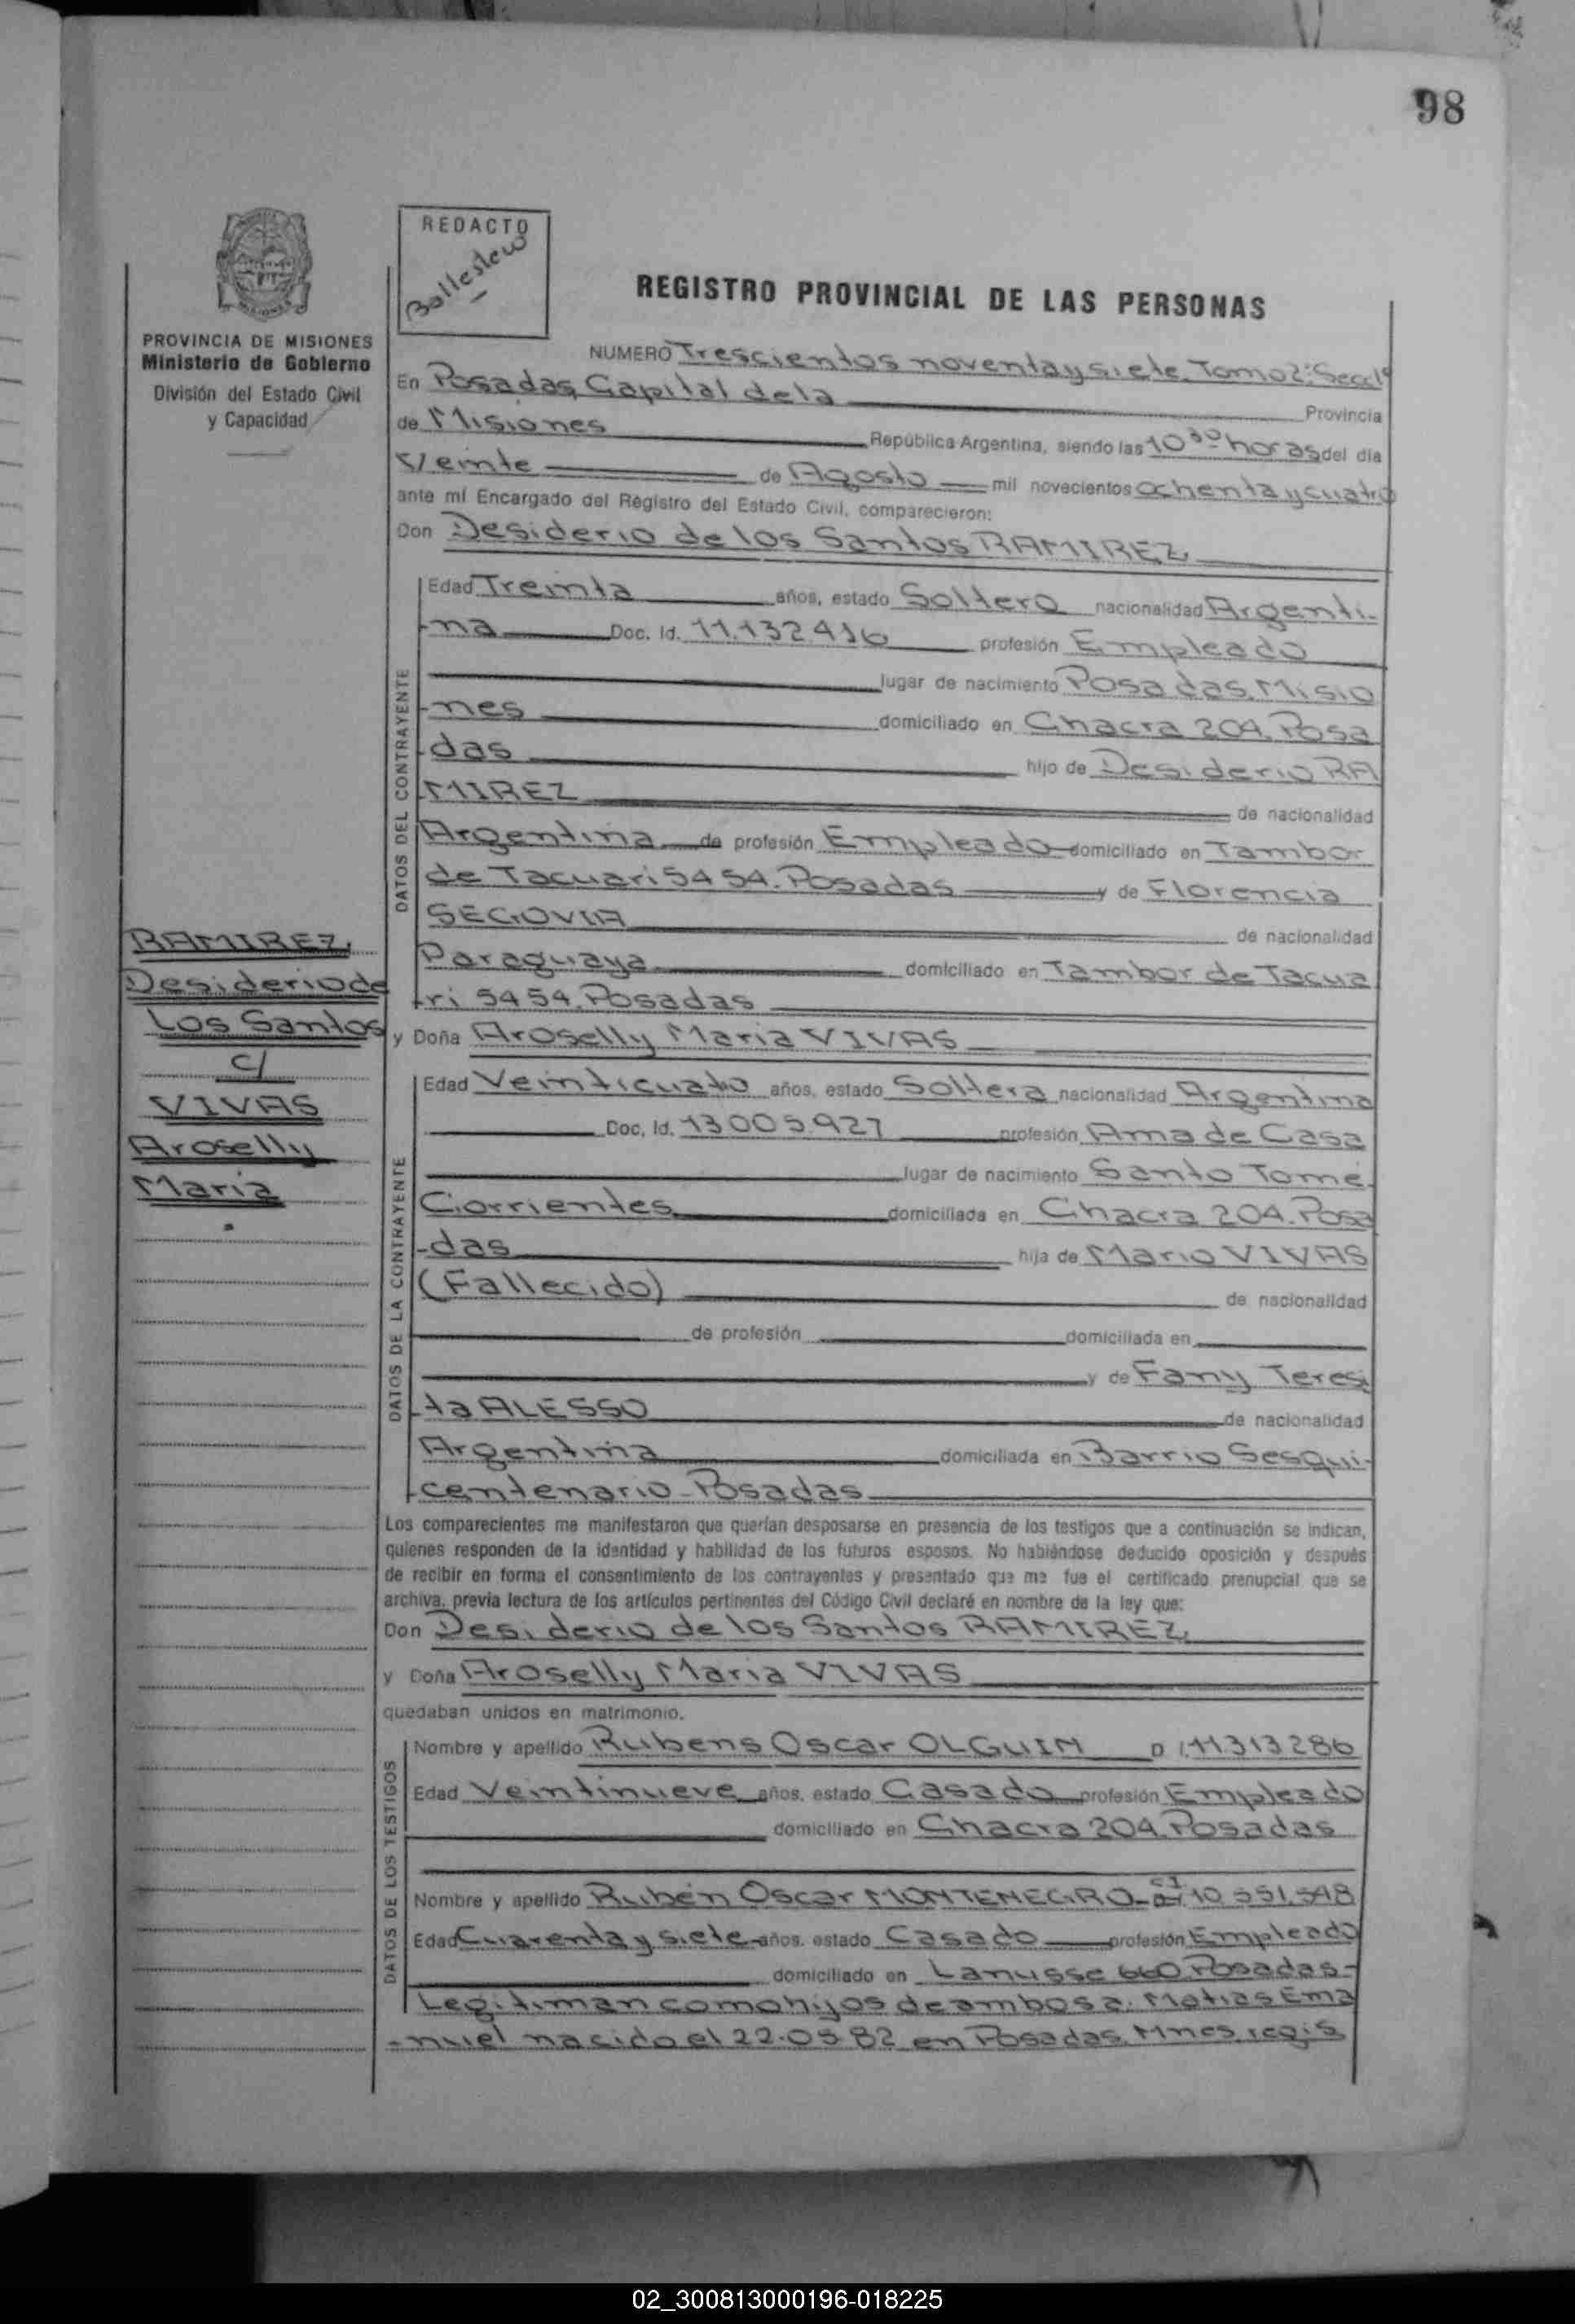 98
REDACTO
Ballesteu
REGISTRO PROVINCIAL DE LAS PERSONAS
PROVINCIA DE MISIONES
Ministerio de Gobierno
División del Estado Civil
y Capacidad
NUMERO Trescientos noventa y siete. Tomo 2: Secc 1º
En Posadas, Capital de la Provincia
de Misiones República Argentina, siendo las 10 30 horas del día
Veinte de Agosto mil novecientos ochenta y cuatro
ante mí Encargado del Registro del Estado Civil, comparecieron:
Don Desiderio de los Santos RAMIREZ
Edad Treinta años, estado Soltero nacionalidad Argenti-
-na Doc. Id. 11.132.416 profesión Empleado
lugar de nacimiento Posadas, Misio
-nes domiciliado en Chacra 204. Posa
-das hijo de Desiderio RA
-MIREZ de nacionalidad
Argentina de profesión Empleado domiciliado en Tambor
de Tacuari 5454. Posadas y de Florencia
SEGOVIA de nacionalidad
Paraguaya domiciliado en Tambor de Tacua
-ri 5454. Posadas
y Doña Aroselly Maria VIVAS
Edad Veinticuatro años, estado Soltera nacionalidad Argentina
Doc. Id. 13.005.927 profesión Ama de Casa
lugar de nacimiento Santo Tomé.
Corrientes domiciliada en Chacra 204. Posa
-das hija de Mario VIVAS
(Fallecido) de nacionalidad
de profesión domiciliada en
y de Fany Teresi
-ta ALESSO de nacionalidad
Argentina domiciliada en Barrio Sesqui-
-centenario - Posadas
DATOS DEL CONTRAYENTE
DATOS DE LA CONTRAYENTE
RAMIREZ,
Desiderio de
Los Santos
c/
VIVAS
Aroselly
Maria
Los comparecientes me manifestaron que querían desposarse en presencia de los testigos que a continuación se indican,
quienes responden de la identidad y habilidad de los futuros esposos. No habiéndose deducido oposición y después
de recibir en forma el consentimiento de los contrayentes y presentado que me fue el certificado prenupcial que se
archiva, previa lectura de los artículos pertinentes del Código Civil declaré en nombre de la ley que:
Don Desiderio de los Santos RAMIREZ
y Doña Aroselly Maria VIVAS
quedaban unidos en matrimonio.
DATOS DE LOS TESTIGOS
Nombre y apellido Rubens Oscar OLGUIN D I. 11313286
Edad Veintinueve años, estado Casado profesión Empleado
domiciliado en Chacra 204. Posadas
Nombre y apellido Rubén Oscar MONTENEGRO - CI 10.551.548
Edad Cuarenta y siete años, estado Casado profesión Empleado
domiciliado en Lanusse 660. Posadas-
Legitiman como hijos de ambos a: Matias Ema
-nuel nacido el 22.05.82 en Posadas. Mnes, regis
02_300813000196-018225